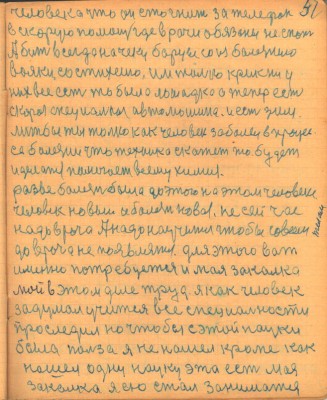 51
человека что он сточнит за телефон
в скорую помощь где врачи обязоны не спат
А быт всегда начеку борьбе со из болезнею
всяки состихею, им толко крикни у
них все ест то было лошадка а теперь ест
скорая специалная автомошина. и ест зим.
литвы ты толко как человек заболеи в процес
се болезни что техника скажет то будет
и диату помогает всему химия.
разве болезн была до этого на этом человеке
человек новыи и болезн нова. не сеи час
надо врача А надо научится чтобы совсем
до врача не появлятся. для этого вот
именно потребуется и моя закалка
мои в этом деле труд я как человек
задумал учится все специалности
проследил но чтобы с этой науки
была полза я не нашел кроме как
нашел одну науку эта ест моя
закалка я ею стал занимаятся